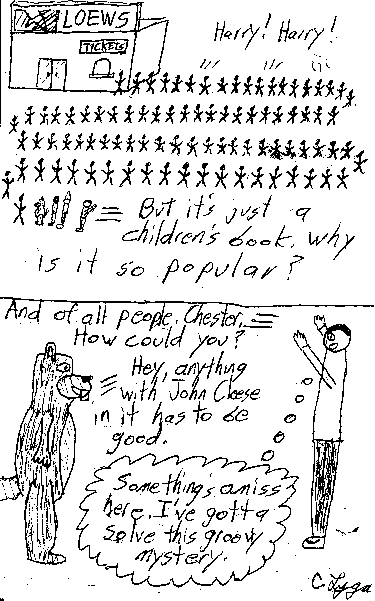 LOEWS
TICKETS
Harry! Harry!
But it's just a
children's book. Why
is it so popular?
And of all people, Chester.
How could you?
Hey, anything
with John Cleese
in it has to be
good.
Something's amiss
here. I've gotta
solve this groovy
mystery.
C. Lyga